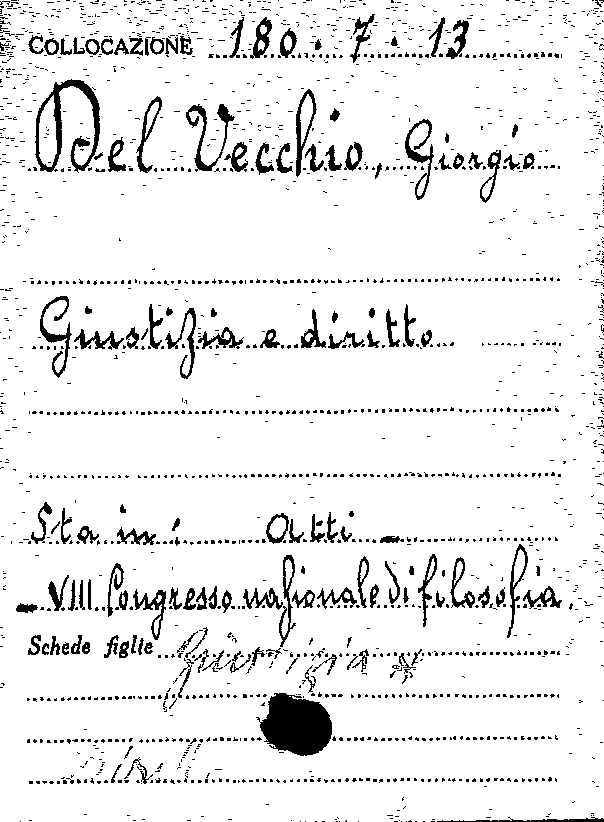 COLLOCAZIONE 180 · 7 · 13
Del Vecchio, Giorgio
Giustizia e diritto
Sta in: Atti –
– VIII Congresso nazionale di filosofia.
Schede figlie Giustizia *